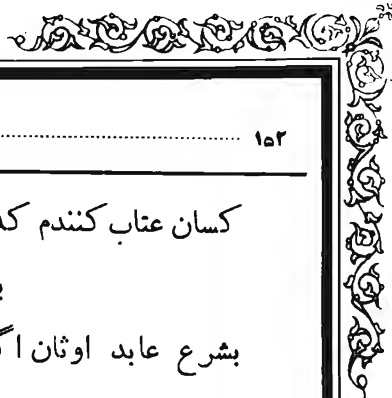 ۱۵۲ ........................................
کسان عتاب کنندم
بشرع عابد اوثان